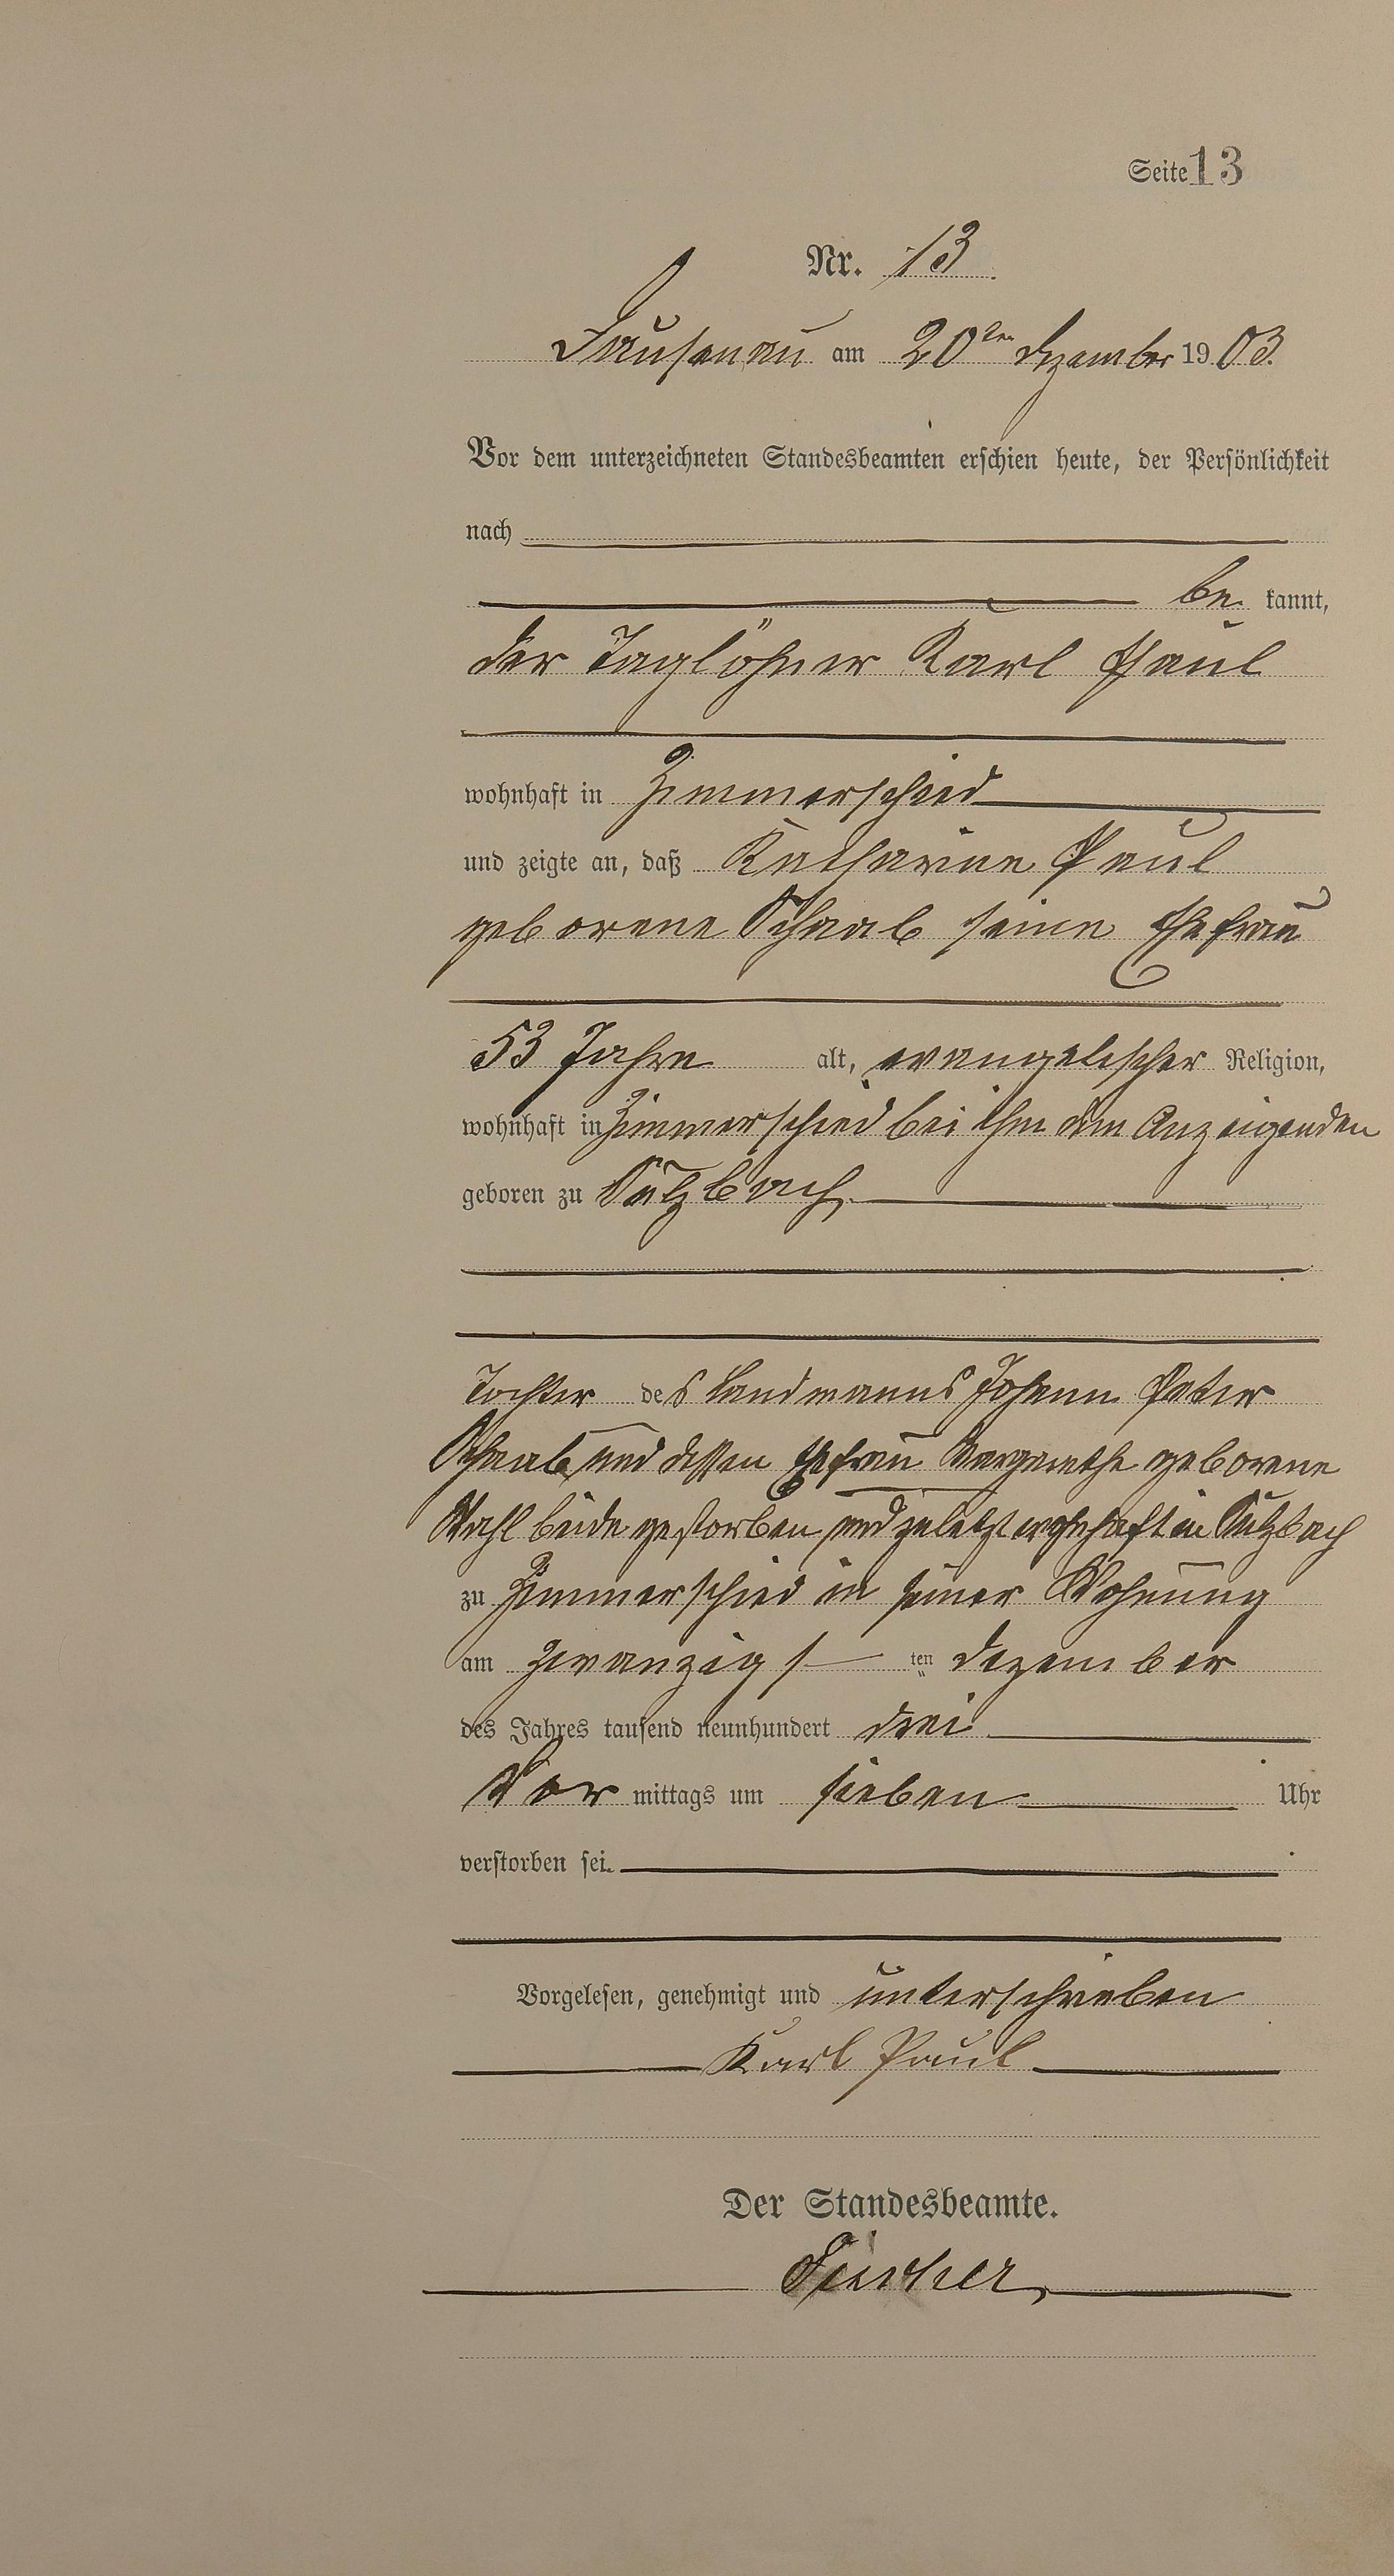 Seite 13
Nr. 13
Dausenau am 20ten Dezember 1903.
Vor dem unterzeichneten Standesbeamten erschien heute, der Persönlichkeit
nach
be kannt,
der Taglöhner Karl Paul
wohnhaft in Zimmerschied
und zeigte an, daß Katharine Paul
geborene Schaab seine Ehefrau
53 Jahre alt, evangelischer Religion,
wohnhaft in Zimmerschied bei ihm dem Anzeigenden
geboren zu Sulzbach
Tochter des Landmanns Johann Peter
Schaab und dessen Ehefrau Margarethe geborene
beide gestorben und zuletzt wohnhaft in Sulzbach
zu Zimmerschied in seiner Wohnung
am zwanzigs ten Dezember
des Jahres tausend neunhundert drei
Vor mittags um sieben Uhr
verstorben sei.
Vorgelesen, genehmigt und unterschrieben
Karl Paul
Der Standesbeamte.